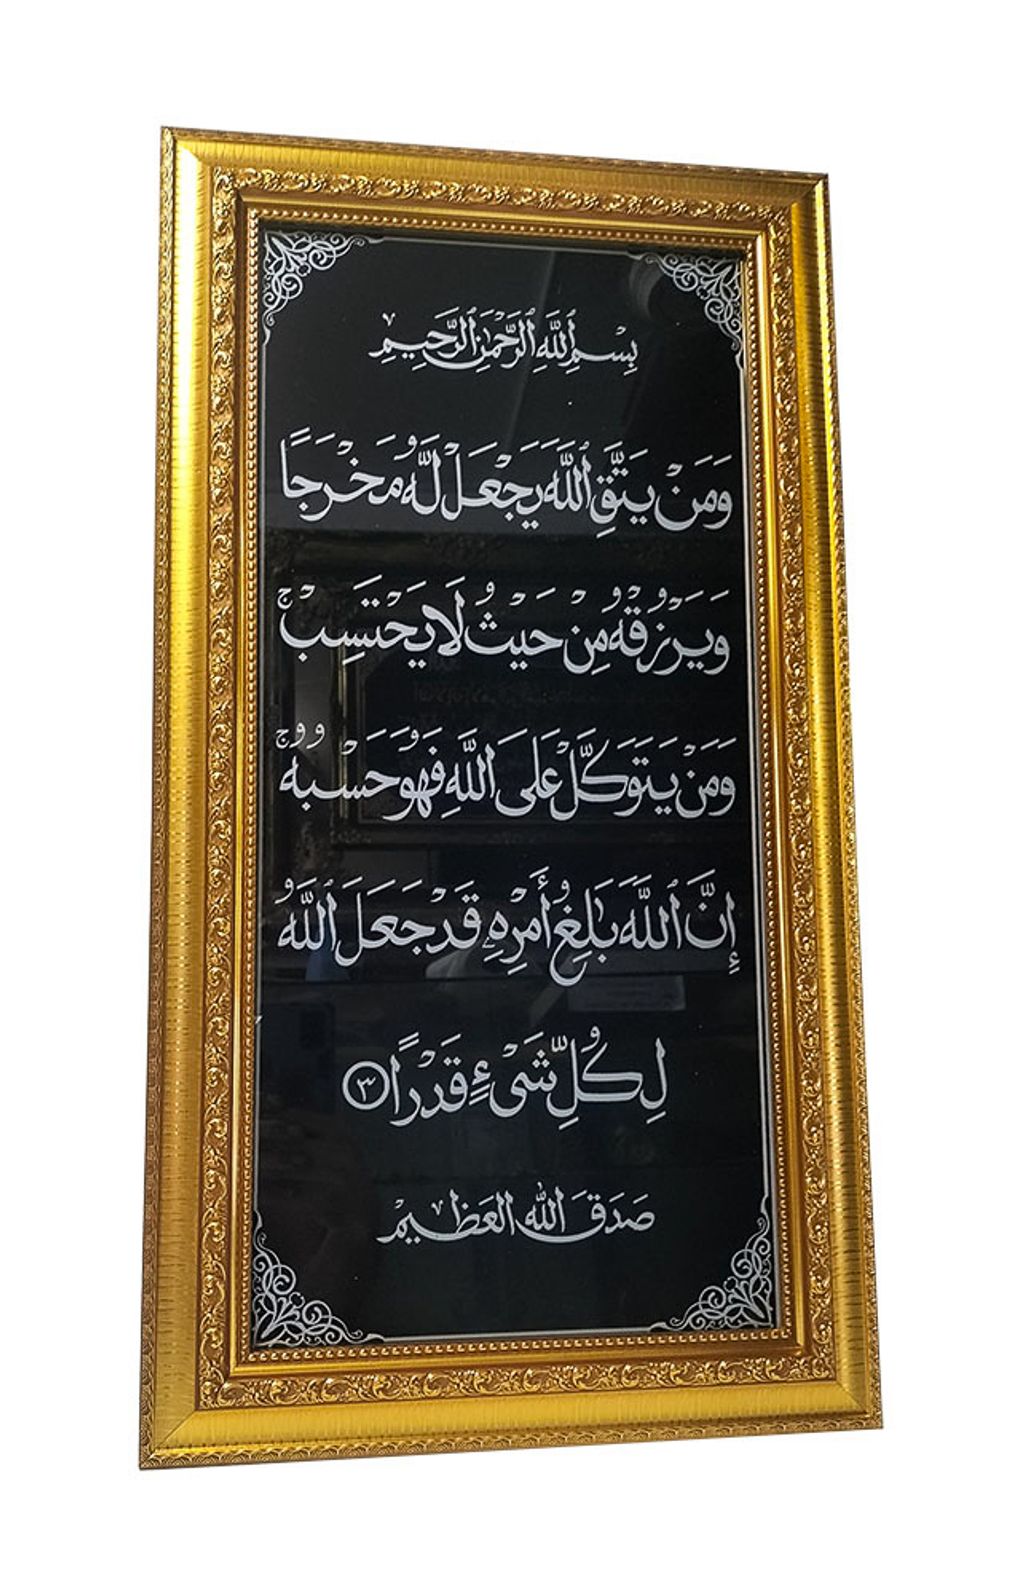 بِسْمِ ٱللَّهِ ٱلرَّحْمَٰنِ ٱلرَّحِيمِ
وَمَنْ يَتَّقِ ٱللَّهَ يَجْعَلْ لَّهُ مَخْرَجًا
وَيَرْزُقْهُ مِنْ حَيْثُ لَا يَحْتَسِبُ ۚ
وَمَنْ يَتَوَكَّلْ عَلَى اللَّهِ فَهُوَ حَسْبُهُ ۚ
إِنَّ ٱللَّهَ بَٰلِغُ أَمْرِهِۦ قَدْ جَعَلَ ٱللَّهُ
لِكُلِّ شَىْءٍ قَدْرًا ٣
صَدَقَ اللَّهُ الْعَظِيمُ